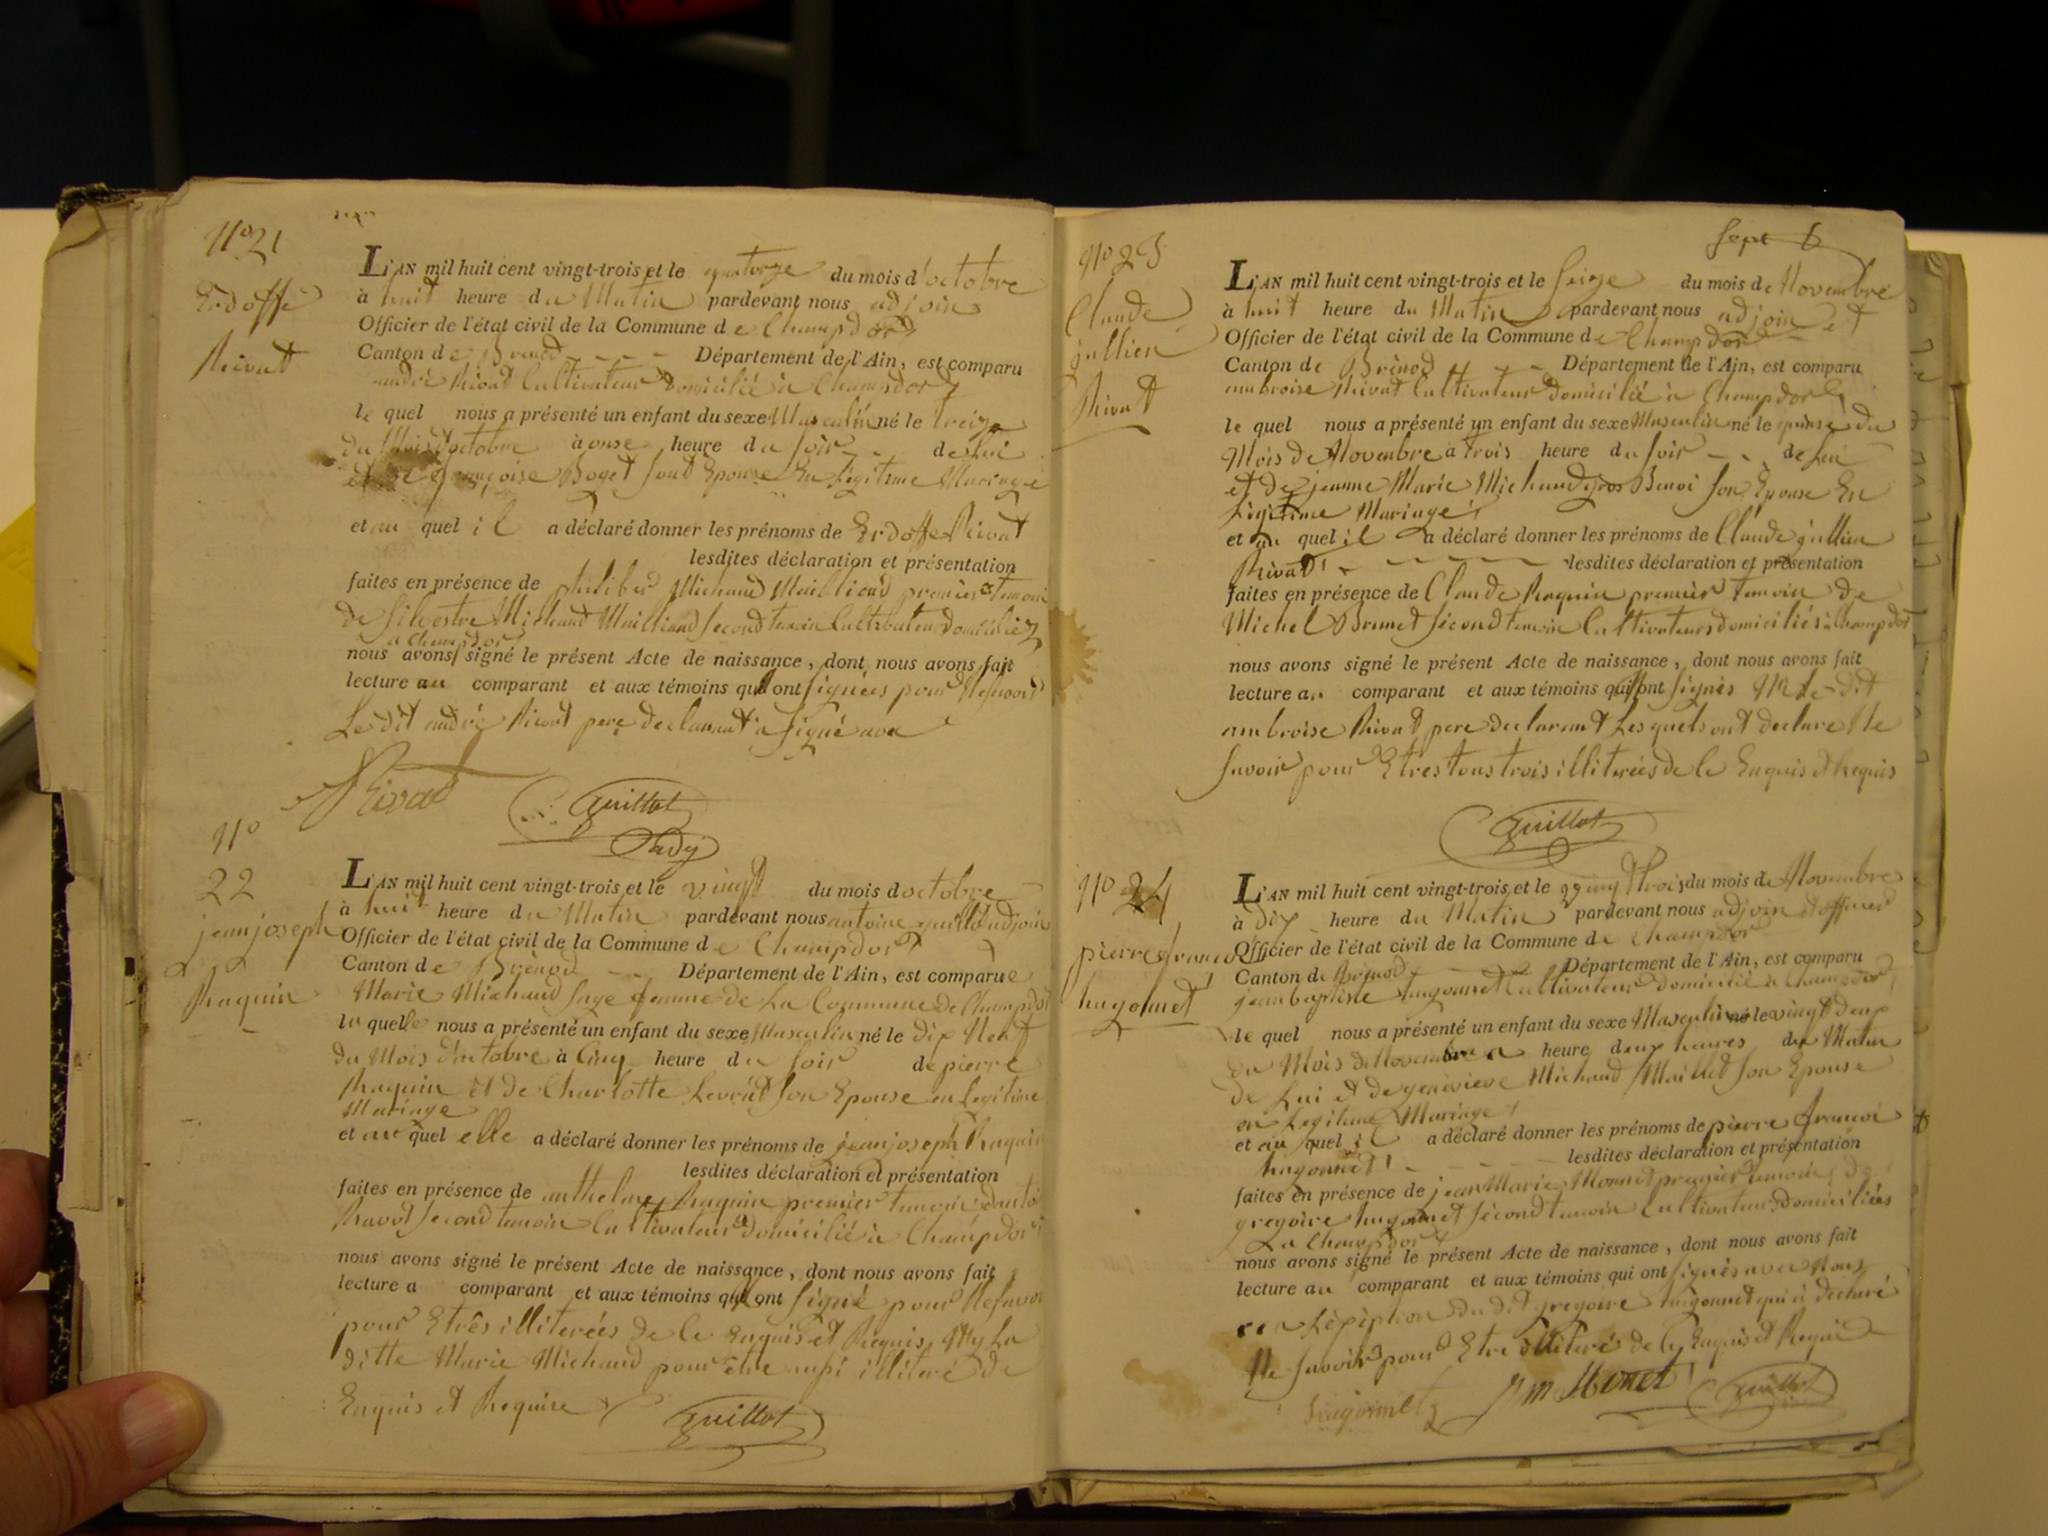 N° 21
Erdoffe
Rivat
L'AN mil huit cent vingt-trois et le quatorze du mois d'octobre
à huit heure du Matin pardevant nous adjoin
Officier de l'état civil de la Commune de Champdor
Canton de Brenod Département de l'Ain, est comparu
andré Rivat Cultivateur domicilié à Champdor
le quel nous a présenté un enfant du sexe Masculin né le treize
du Mois d'octobre à onse heure du soir de lui
et de françoise Boget sont Epouse En Legitime Mariage
et au quel il a déclaré donner les prénoms de Erdoffe Rivat
lesdites déclaration et présentation
faites en présence de philiber Michaud Mailland premier temoin
de Silvestre Michaud Mailland second temoin Cultivateur domiciliez
a Champdor
nous avons signé le présent Acte de naissance, dont nous avons fait
lecture au comparant et aux témoins qui ont signées pour Ne savoir
Le dit andré Rivat pere declarant a signé avec
Rivat Guillot
N°
22
jean joseph
Raquin
L'AN mil huit cent vingt-trois et le vingt du mois d octobre
à huit heure du Matin pardevant nous antoine guillot adjoin
Officier de l'état civil de la Commune de Champdor
Canton de Brénod Département de l'Ain, est comparue
Marie Michaud sage femme de La Commune de Champdor
la quelle nous a présenté un enfant du sexe Masculin né le dix Neuf
du Mois d'octobre à Cinq heure du soir de pierre
Raquin et de Charlotte Levrat son Epouse en Legitime
Mariage
et au quel elle a déclaré donner les prénoms de jean joseph Raquin
lesdites déclaration et présentation
faites en présence de anthelme Raquin premier temoin
Ravot second temoin Cultivateur domicilié à Champdor
nous avons signé le présent Acte de naissance, dont nous avons fait
lecture a comparant et aux témoins qui ont signé pour Ne savoir
pour Etrês illiterées de le Enquis et Requis Ny La
ditte Marie Michaud pour être aussi illiteré de
Enquis et Requise
Guillot
Sept 6
N° 23
Claude
jullien
Rivat
L'AN mil huit cent vingt-trois et le seize du mois de Novembre
à huit heure du Matin pardevant nous adjoin et
Officier de l'état civil de la Commune de Champdor
Canton de Brénod Département de l'Ain, est comparu
ambroise Rivat Cultivateur domicilié à Champdor
le quel nous a présenté un enfant du sexe Masculin né le quinse du
Mois de Novembre à trois heure du soir de lui
et de jeanne Marie Michaud gros Benoi son Epouse En
Légitime Mariage
et au quel il a déclaré donner les prénoms de Claude jullien
Rivat lesdites déclaration et présentation
faites en présence de Claude Raquin premier temoin de
Michel Brunet sécond temoin Cultivateurs domiciliés a Champdor
nous avons signé le présent Acte de naissance, dont nous avons fait
lecture au comparant et aux témoins qui ont signés Ni Le dit
ambroise Rivat pere declarant Lesquels ont declaré Ne
savoir pour Etres tous trois illiterées de le Enquis et Requis
Guillot
N° 24
pierre francoi
hugonnet
L'AN mil huit cent vingt-trois et le vingt trois du mois de Novembre
à dix heure du Matin pardevant nous adjoin et officier
Officier de l'état civil de la Commune de Champdor
Canton de Brénod Département de l'Ain, est comparu
jean baptiste hugonnet Cultivateur domicilié à Champdor
le quel nous a présenté un enfant du sexe Masculin né le vingt deux
du Mois de Novembre a heure deux heures du Matin
de Lui et de geneviève Michaud Maillet son Epouse
en Legitime Mariage
et au quel il a déclaré donner les prénoms de pierre francoi
hugonnet lesdites déclaration et présentation
faites en présence de jean Marie Monnet premier temoin de
gregoire hugonnet sécond temoin Cultivateurs domiciliées
a Champdor
nous avons signé le présent Acte de naissance, dont nous avons fait
lecture au comparant et aux témoins qui ont signés avec Nous
a L'éxeption du dit gregoire hugonnet qui a declaré
Ne savoir pour Etre illiteré de Enquis et Requis
hugonnet J M Monet Guillot